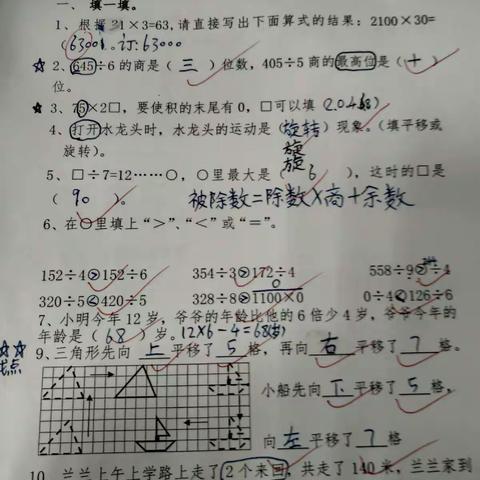 一、填一填。
1、根据21×3=63,请直接写出下面算式的结果：2100×30=
(63001。订:63000
☆ 2、645÷6的商是(三)位数，405÷5商的最高位是(十)
位。
☆ 3、75×2□，要使积的末尾有0，□可以填(2.0.4.6.8)
4、打开水龙头时，水龙头的运动是(旋转)现象。(填平移或
旋转)。 旋
旋
5、□÷7=12……○，○里最大是(6)，这时的□是
(90)。 被除数=除数×商+余数
6、在○里填上“>”、“<”或“=”。
152÷4>152÷6 354÷3>172÷4 558÷9>÷4
0
320÷5<420÷5 328÷8>1100×0 0÷4<126÷6
7、小明今年12岁，爷爷的年龄比他的6倍少4岁，爷爷今年的
年龄是(68)岁。12×6-4=68(岁)
☆☆ 9、三角形先向 上 平移了 5 格，再向 右 平移了 7 格。
点
小船先向 下 平移了 5 格，
向 左 平移了 7 格
10、兰兰上午上学路上走了2个来回，共走了140米，兰兰家到